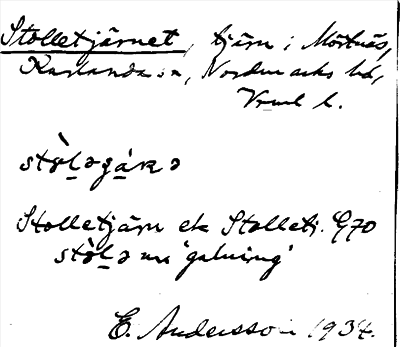 Stolletjärnet, tjärn i Mörtnäs,
Karlanda sn, Nordmarks hd,
Vrml l.
stòləgárə
Stolletjärn ek Stolletj. G70
stòlə m 'galning'
E. Andersson 1934.